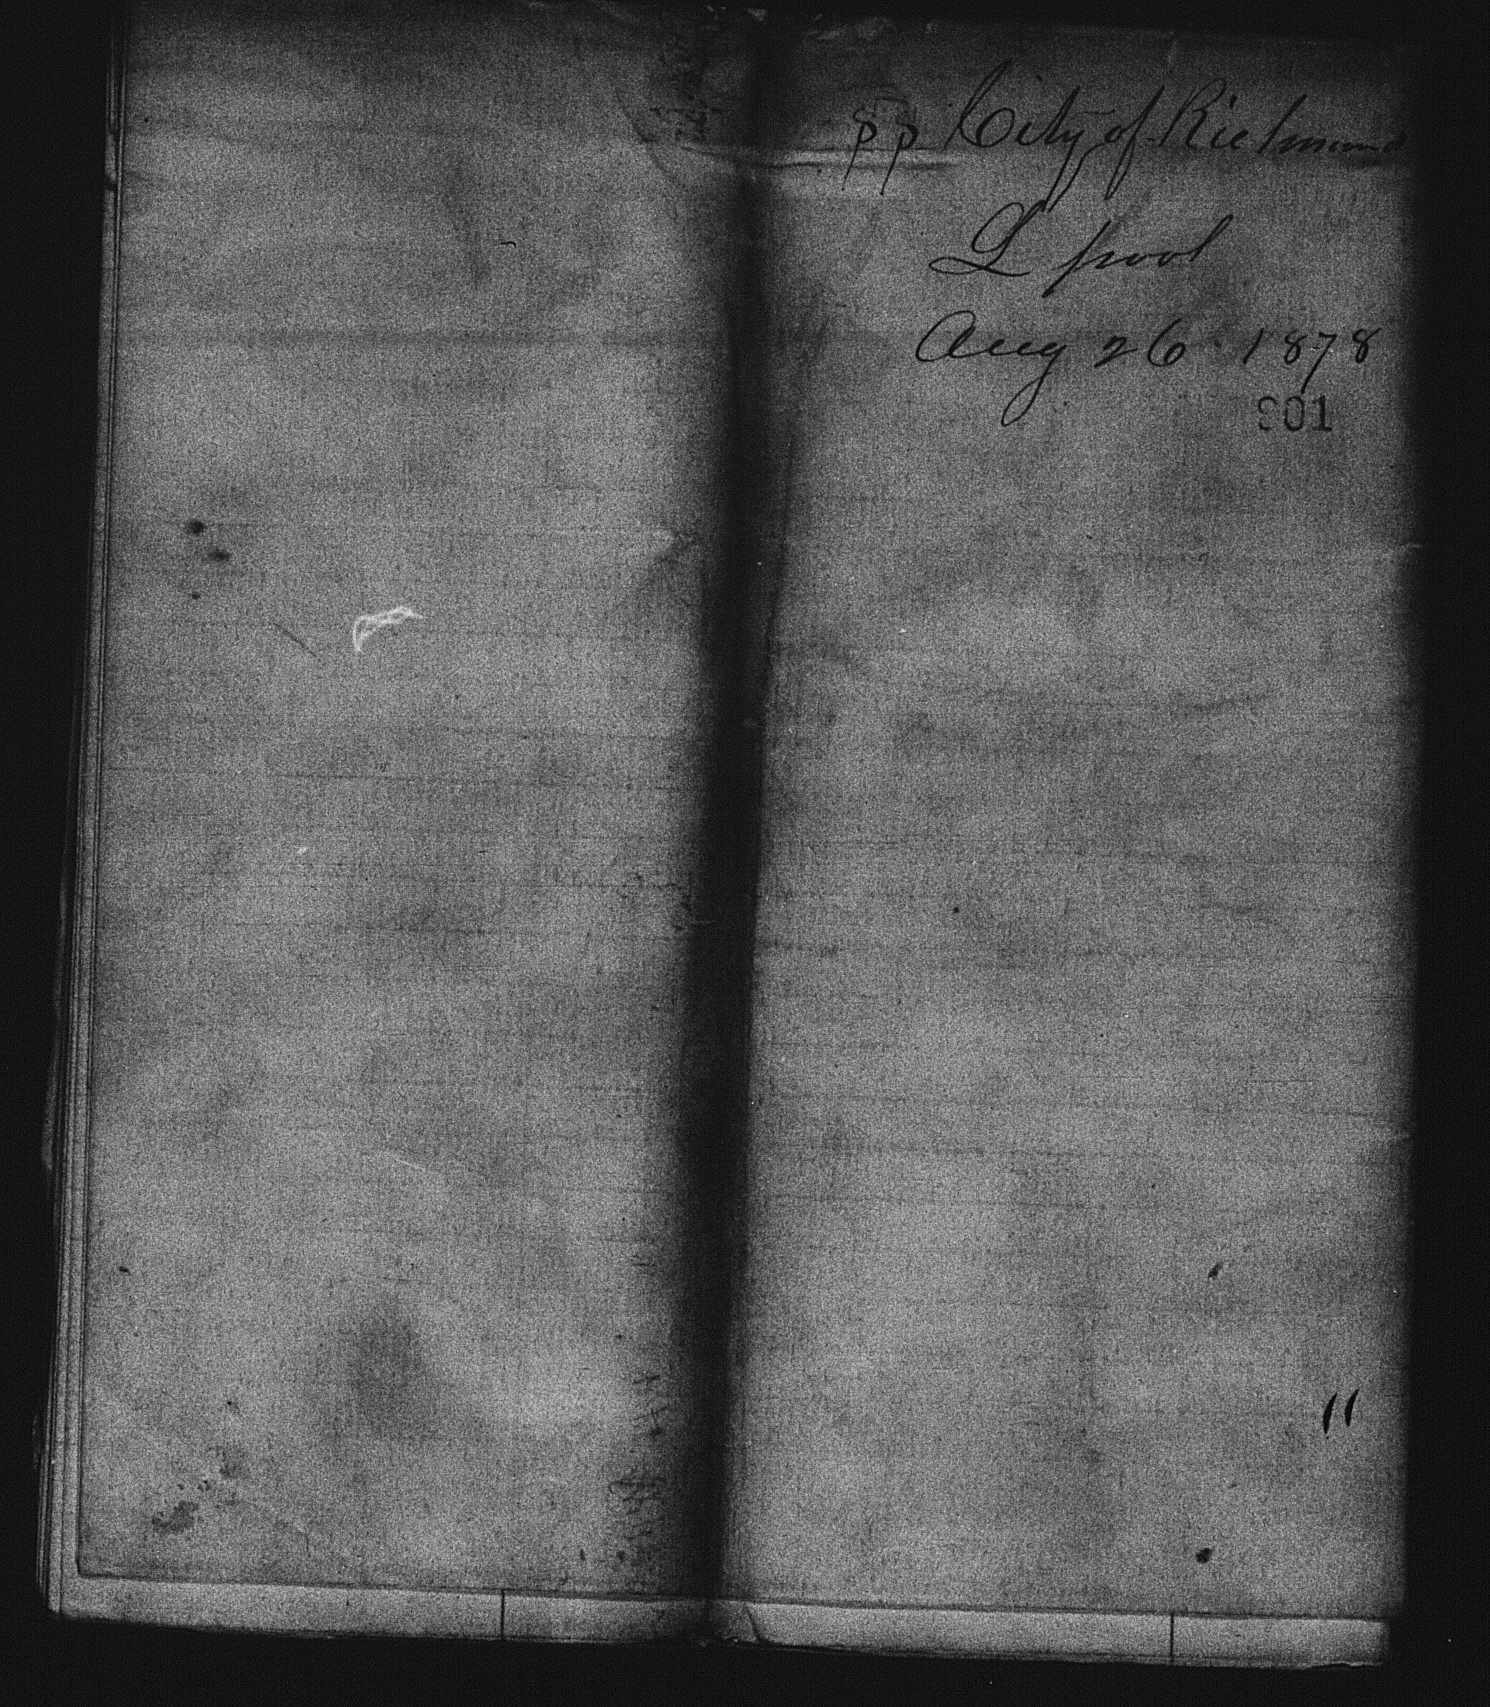 SS City of Richmond
L pool
Aug 26 · 1878
901
11